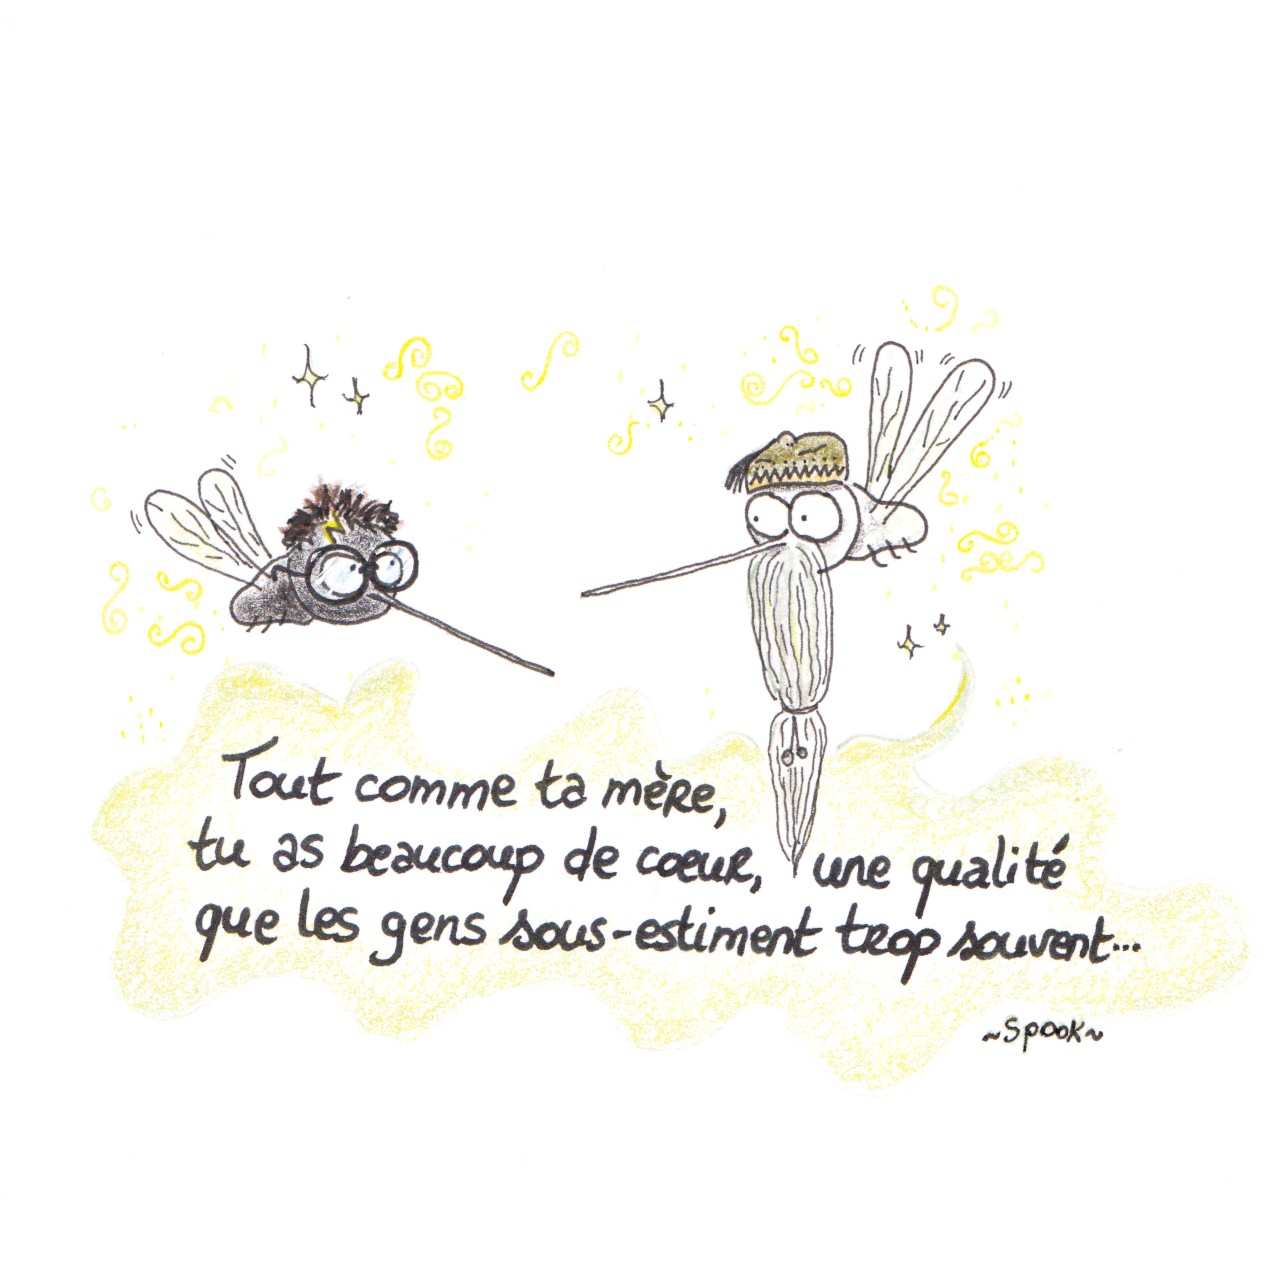 Tout comme ta mère,
tu as beaucoup de cœur, une qualité
que les gens sous-estiment trop souvent...
~Spook~